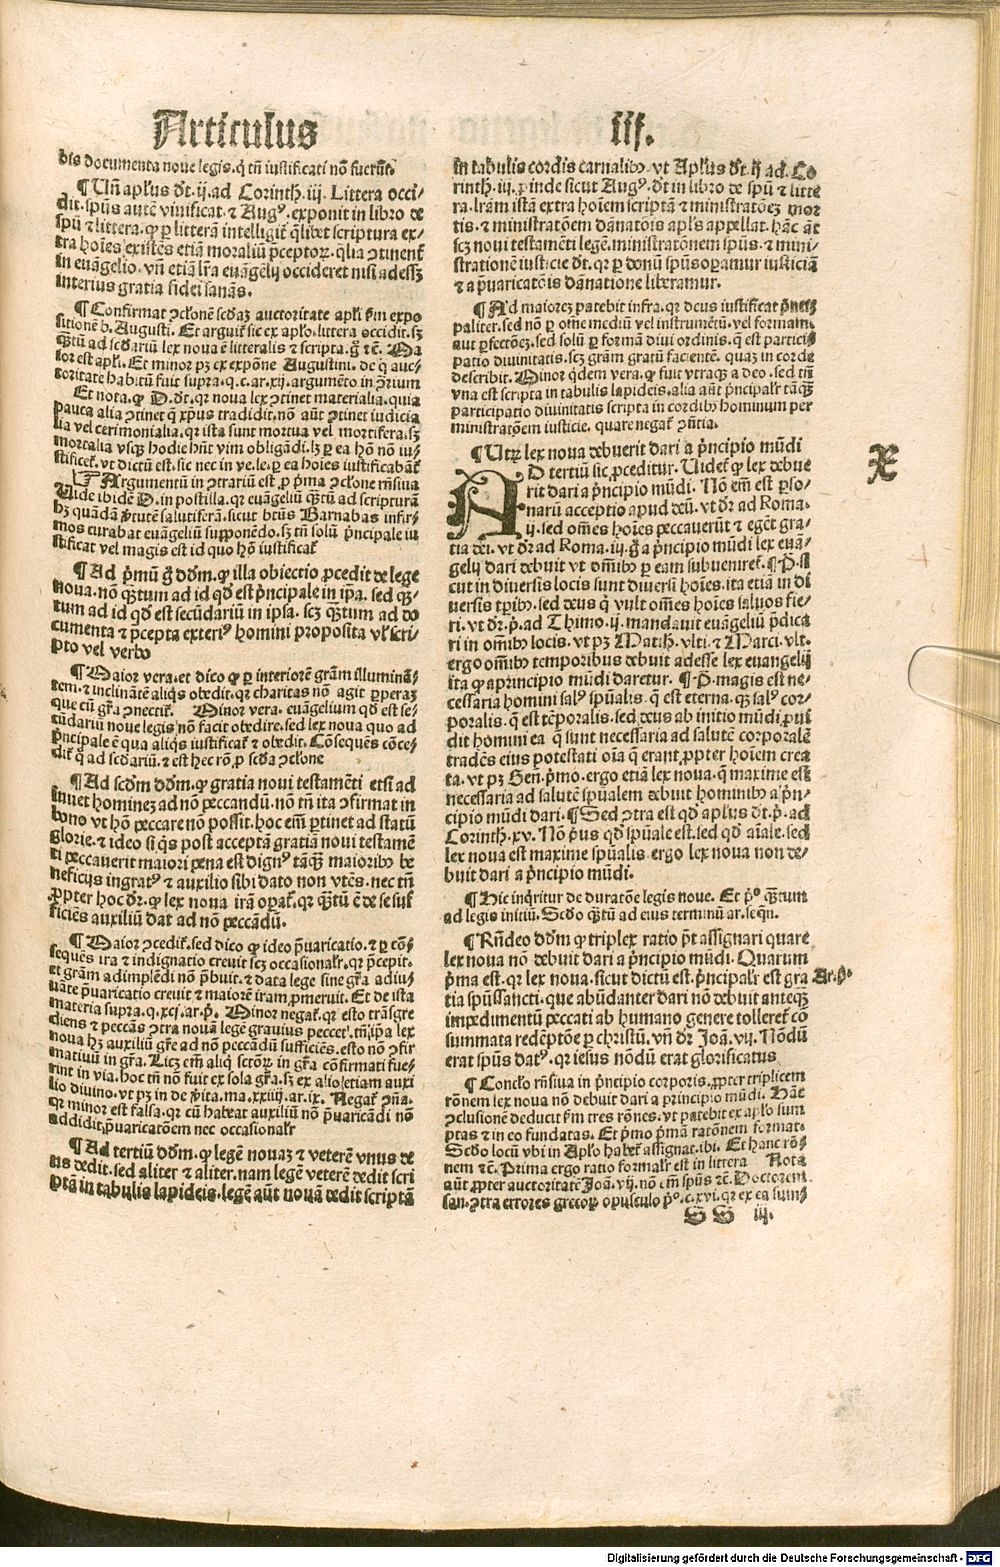 Articulus iij.
bis documenta noue legis. q̈ tñ iustificati nõ fuerũt.
¶ Uñ apl'us dt̃. ij. ad Corinth. iij. Littera occi/
dit. spũs autẽ viuificat. ⁊ Augꝰ. exponit in libro de
spũ ⁊ littera. ꝙ ꝑ litterã intelligit̃ q̃libet scriptura ex/
tra hoĩes existẽs etiã moraliũ p̃ceptoꝝ. q̃lia ꝯtinent̃
in euãgelio. vñ etiã lr̃a euãgelij occideret nisi adesset
interius gratia fidei sanãs.
¶ Confirmat ꝯclonẽ scdaꝫ auctoritate apl'i ẜm expo
sitionẽ b. Augusti. Et arguit̃ sic ex apl'o. littera occidit. sꝫ
q̃ꝫtũ ad scd'ariũ lex noua ẽ litteralis ⁊ scripta. g̊ ⁊c̃. Ma
ior est apl'i. Et minor pꝫ ex expõne Augustini. de q̈ auc/
toritate habitũ fuit supra. q. c. ar. xij. argumẽto in ꝯriũm
Et nota. ꝙ D. dt̃. qr noua lex ꝯtinet materialia. quia
pauca alia ꝯtinet q̃ xp̃us tradidit. nõ aũt ꝯtinet iudicia
lia vel cerimonialia. qr ista sunt mortua vel mortifera. sꝫ
mortalia vsqꝫ hodie hñt vim obligãdi. lꝫ ꝑ ea hõ nõ iu/
stificet̃. vt dictũ est. sic nec in ve. le. ꝑ ea hoies iustificabãt̃
☞ Argumentũ in ꝯtrariũ est ꝓ p̃ma ꝯclone rñsiua
Uide ibidẽ D. in postilla. qr euangeliũ q̃ꝫtũ ad scripturã
hꝫ quãdã v̾tutẽ salutiferã. sicut btũs Barnabas infir/
mos curabat euangeliũ supponẽdo. sꝫ tñ solũ p̃ncipale iu
stificat vel magis est id quo hõ iustificat̃
¶ Ad p̃mũ g̊ dd'm. ꝙ illa obiectio ꝓcedit de lege
noua. nõ q̃ꝫtum ad id qd' est p̃ncipale in ip̃a. sed q̃ꝫ/
tum ad id qd' est secũdariũ in ipsa. scꝫ q̃ꝫtum ad do
cumenta ⁊ p̃cepta exteriꝰ homini proposita vl' scri/
pto vel verbo
¶ Maior vera. et dico ꝙ ꝑ interiorẽ grãm illuminã/
tem. ⁊ inclinãtẽ aliq̃s obedit. qr charitas nõ agit ꝑperaꝫ
que cũ gr̃a ꝯnectit̃. Minor vera. euãgelium qd' est se/
cũdariũ noue legis nõ facit obedire. sed lex noua quo ad
p̃ncipale ẽ qua aliq̃s iustificat̃ ⁊ obedit. Cõsequẽs cõce/
dit̃ q̃ ad scd'ariũ. ⁊ est hec rõ. ꝓ scd'a ꝯclone
¶ Ad scd'm dd'm. ꝙ gratia noui testamẽti etsi ad
iuuet hominez ad nõ peccandũ. nõ tñ ita ꝯfirmat in
bono vt hõ peccare nõ possit. hoc em̃ ꝑtinet ad statũ
glorie. ⁊ ideo si q̃s post acceptã gratiã noui testamẽ
ti peccauerit maiori pena est dignꝰ tãqꝫ maioribꝰ be
neficus ingratꝰ ⁊ auxilio sibi dato non vtẽs. nec tñ
ꝓpter hoc dr̃. ꝙ lex noua irã oꝑat̃. qr q̃ꝫtũ ẽ de se suf
ficiẽs auxiliũ dat ad nõ peccãdũ.
¶ Maior ꝯcedit̃. sed dico ꝙ ideo p̃uaricatio. ⁊ ꝑ cõ/
sequẽs ira ⁊ indignatio creuit scꝫ occasional'r. qr p̃cepit.
et grãm adimplẽdi nõ p̃buit. ⁊ data lege sine gr̃a adiu/
uãte p̃uaricatio creuit ⁊ maiorẽ iram. ꝓmeruit. Et de ista
materia supra. q. xcj. ar. p̊. Minor negat̃. qr esto trãsgre
diens ⁊ peccãs ꝯtra nouã legẽ grauius peccet. tñ. ip̃a lex
noua hꝫ auxiliũ gr̃e ad nõ peccãdũ sufficiẽs. esto nõ ꝯfir
matiuũ in gr̃a. Licꝫ em̃ aliq̃ sctõꝝ in gr̃a cõfirmati fue/
rint in via. hoc tñ nõ fuit ex sola gr̃a. sꝫ ex alio etiam auxi
lio diuino. vt pꝫ in de v̾ita. ma. xxiiij. ar. ix. Negat̃ ꝯñã.
qr minor est falsa. qr cũ habeat auxiliũ nõ p̃uaricãdi nõ
addidit. p̃uaricatõem nec occasional'r
¶ Ad tertiũ dd'm. ꝙ legẽ nouaꝫ ⁊ veterẽ vnus de
us dedit. sed aliter ⁊ aliter. nam legẽ veterẽ dedit scri
ptã in tabulis lapideis. legẽ aũt nouã dedit scriptã
in tabulis cordis carnalibꝰ. vt Apl'us dt̃. ij ad. Co
rinth. iij. ꝓinde sicut Augꝰ. dt̃ in libro de spũ ⁊ litte
ra. lr̃am istã extra hoĩem scriptã ⁊ ministratõeꝫ mor
tis. ⁊ ministratõem dãnatõis apl's appellat. hãc at̃
scꝫ noui testamẽti legẽ. ministratõnem spũs. ⁊ mini/
strationẽ iusticie dt̃. qr ꝑ donũ spũs oꝑamur iusticiã
⁊ a p̃uaricatõis dãnatione liberamur.
¶ Ad maioreꝫ patebit infra. qr deus iustificat p̃nci/
paliter. sed nõ ꝑ om̃e mediũ vel instrumẽtũ. vel formam.
aut ꝑfectõeꝫ. sed solũ ꝑ formã diui ordinis. q̃ est partici
patio diuinitatis. scꝫ grãm gratũ facientẽ. quaꝫ in corde
describit. Minor q̃dem vera. ꝙ fuit vtraqꝫ a deo. sed tñ
vna est scripta in tabulis lapideis. alia aũt p̃ncipalr̃ tãqꝫ
participatio diuinitatis scripta in cordibꝰ hominum per
ministratõem iusticie. quare negat̃ ꝯñtia.
¶ Utꝝ lex noua debuerit dari a p̃ncipio mũdi
AD tertiũ sic. ꝓceditur. Uidet̃ ꝙ lex debue
rit dari a p̃ncipio mũdi. Nõ em̃ est ꝑso/
narũ acceptio apud deũ. vt dr̃ ad Roma.
ij. sed om̃es hoĩes peccauerũt ⁊ egẽt gra/
tia dei. vt dr̃ ad Roma. iij. g̊ a p̃ncipio mũdi lex euã/
gelij dari debuit vt om̃ibꝰ ꝑ eam subueniret̃. ¶ P̃. si
cut in diuersis locis sunt diuersi hoĩes. ita etiã in di
uersis tꝑibꝰ. sed deus q̃ vult om̃es hoĩes saluos fie/
ri. vt dr̃. p̃. ad Thimo. ij. mandauit euãgeliũ p̃dica
ri in om̃ibꝰ locis. vt pꝫ Matth. vlti. ⁊ Marci. vlt.
ergo om̃ibꝰ temporibus debuit adesse lex euangelij
ita ꝙ a principio mũdi daretur. ¶ P̃. magis est ne/
cessaria homini salꝰ spũalis. q̃ est eterna. qꝫ salꝰ cor/
poralis. q̃ est tẽporalis. sed deus ab initio mũdi. ꝓui
dit homini ea q̃ sunt necessaria ad salutẽ corporalẽ
tradẽs eius potestati oĩa q̃ erant. ꝓpter hoĩem crea
ta. vt pꝫ Gen. p̃mo. ergo etiã lex noua. q̃ maxime est
necessaria ad salutẽ spũalem debuit hominibꝰ a p̃n/
cipio mũdi dari. ¶ Sed ꝯtra est qd' apl'us dt̃. p̃. ad
Corinth. xv. Nõ p̃us qd' spũale est. sed qd' aĩale. sed
lex noua est maxime spũalis. ergo lex noua non de/
buit dari a p̃ncipio mũdi.
¶ Hic inq̃ritur de duratõe legis noue. Et p̊ꝰ q̃ꝫtum
ad legis initiũ. Scd'o q̃ꝫtũ ad eius terminũ ar. seq̃n.
¶ Rñdeo dd'm ꝙ triplex ratio põt assignari quare
lex noua nõ debuit dari a p̃ncipio mũdi. Quarum
p̃ma est. qr lex noua. sicut dictũ est. p̃ncipal'r est gra
Ar. p̊.
tia spũssancti. que abũdanter dari nõ debuit anteqꝫ
impedimentũ peccati ab humano genere tolleret̃ cõ
summata redẽptõe ꝑ christũ. vñ dr̃ Joã. vij. Nõdũ
erat spũs datꝰ. qr iesus nõdũ erat glorificatus
¶ Conclo rñsiua in p̃ncipio corporis. ꝓpter triplicem
rõnem lex noua nõ debuit dari a principio mũdi. Hãc
ꝯclusionẽ deducit ẜm tres rõnes. vt patebit ex apl'o sum
ptas ⁊ in eo fundatas. Et p̃mo p̃mã ratõnem format.
Scd'o locũ vbi in Apl'o habet̃ assignat. ibi. Et hanc rõ/
nem ⁊c̃. Prima ergo ratio formal'r est in littera Nota
aũt ꝓpter auctoritatẽ Joã. vij. nõ em̃ spũs ⁊c̃. Doctorem
san. ꝯtra errores grecoꝝ opusculo p̊. c. xvi. qr ex ea sumꝫ
SS iij.
X
Digitalisierung gefördert durch die Deutsche Forschungsgemeinschaft - DFG